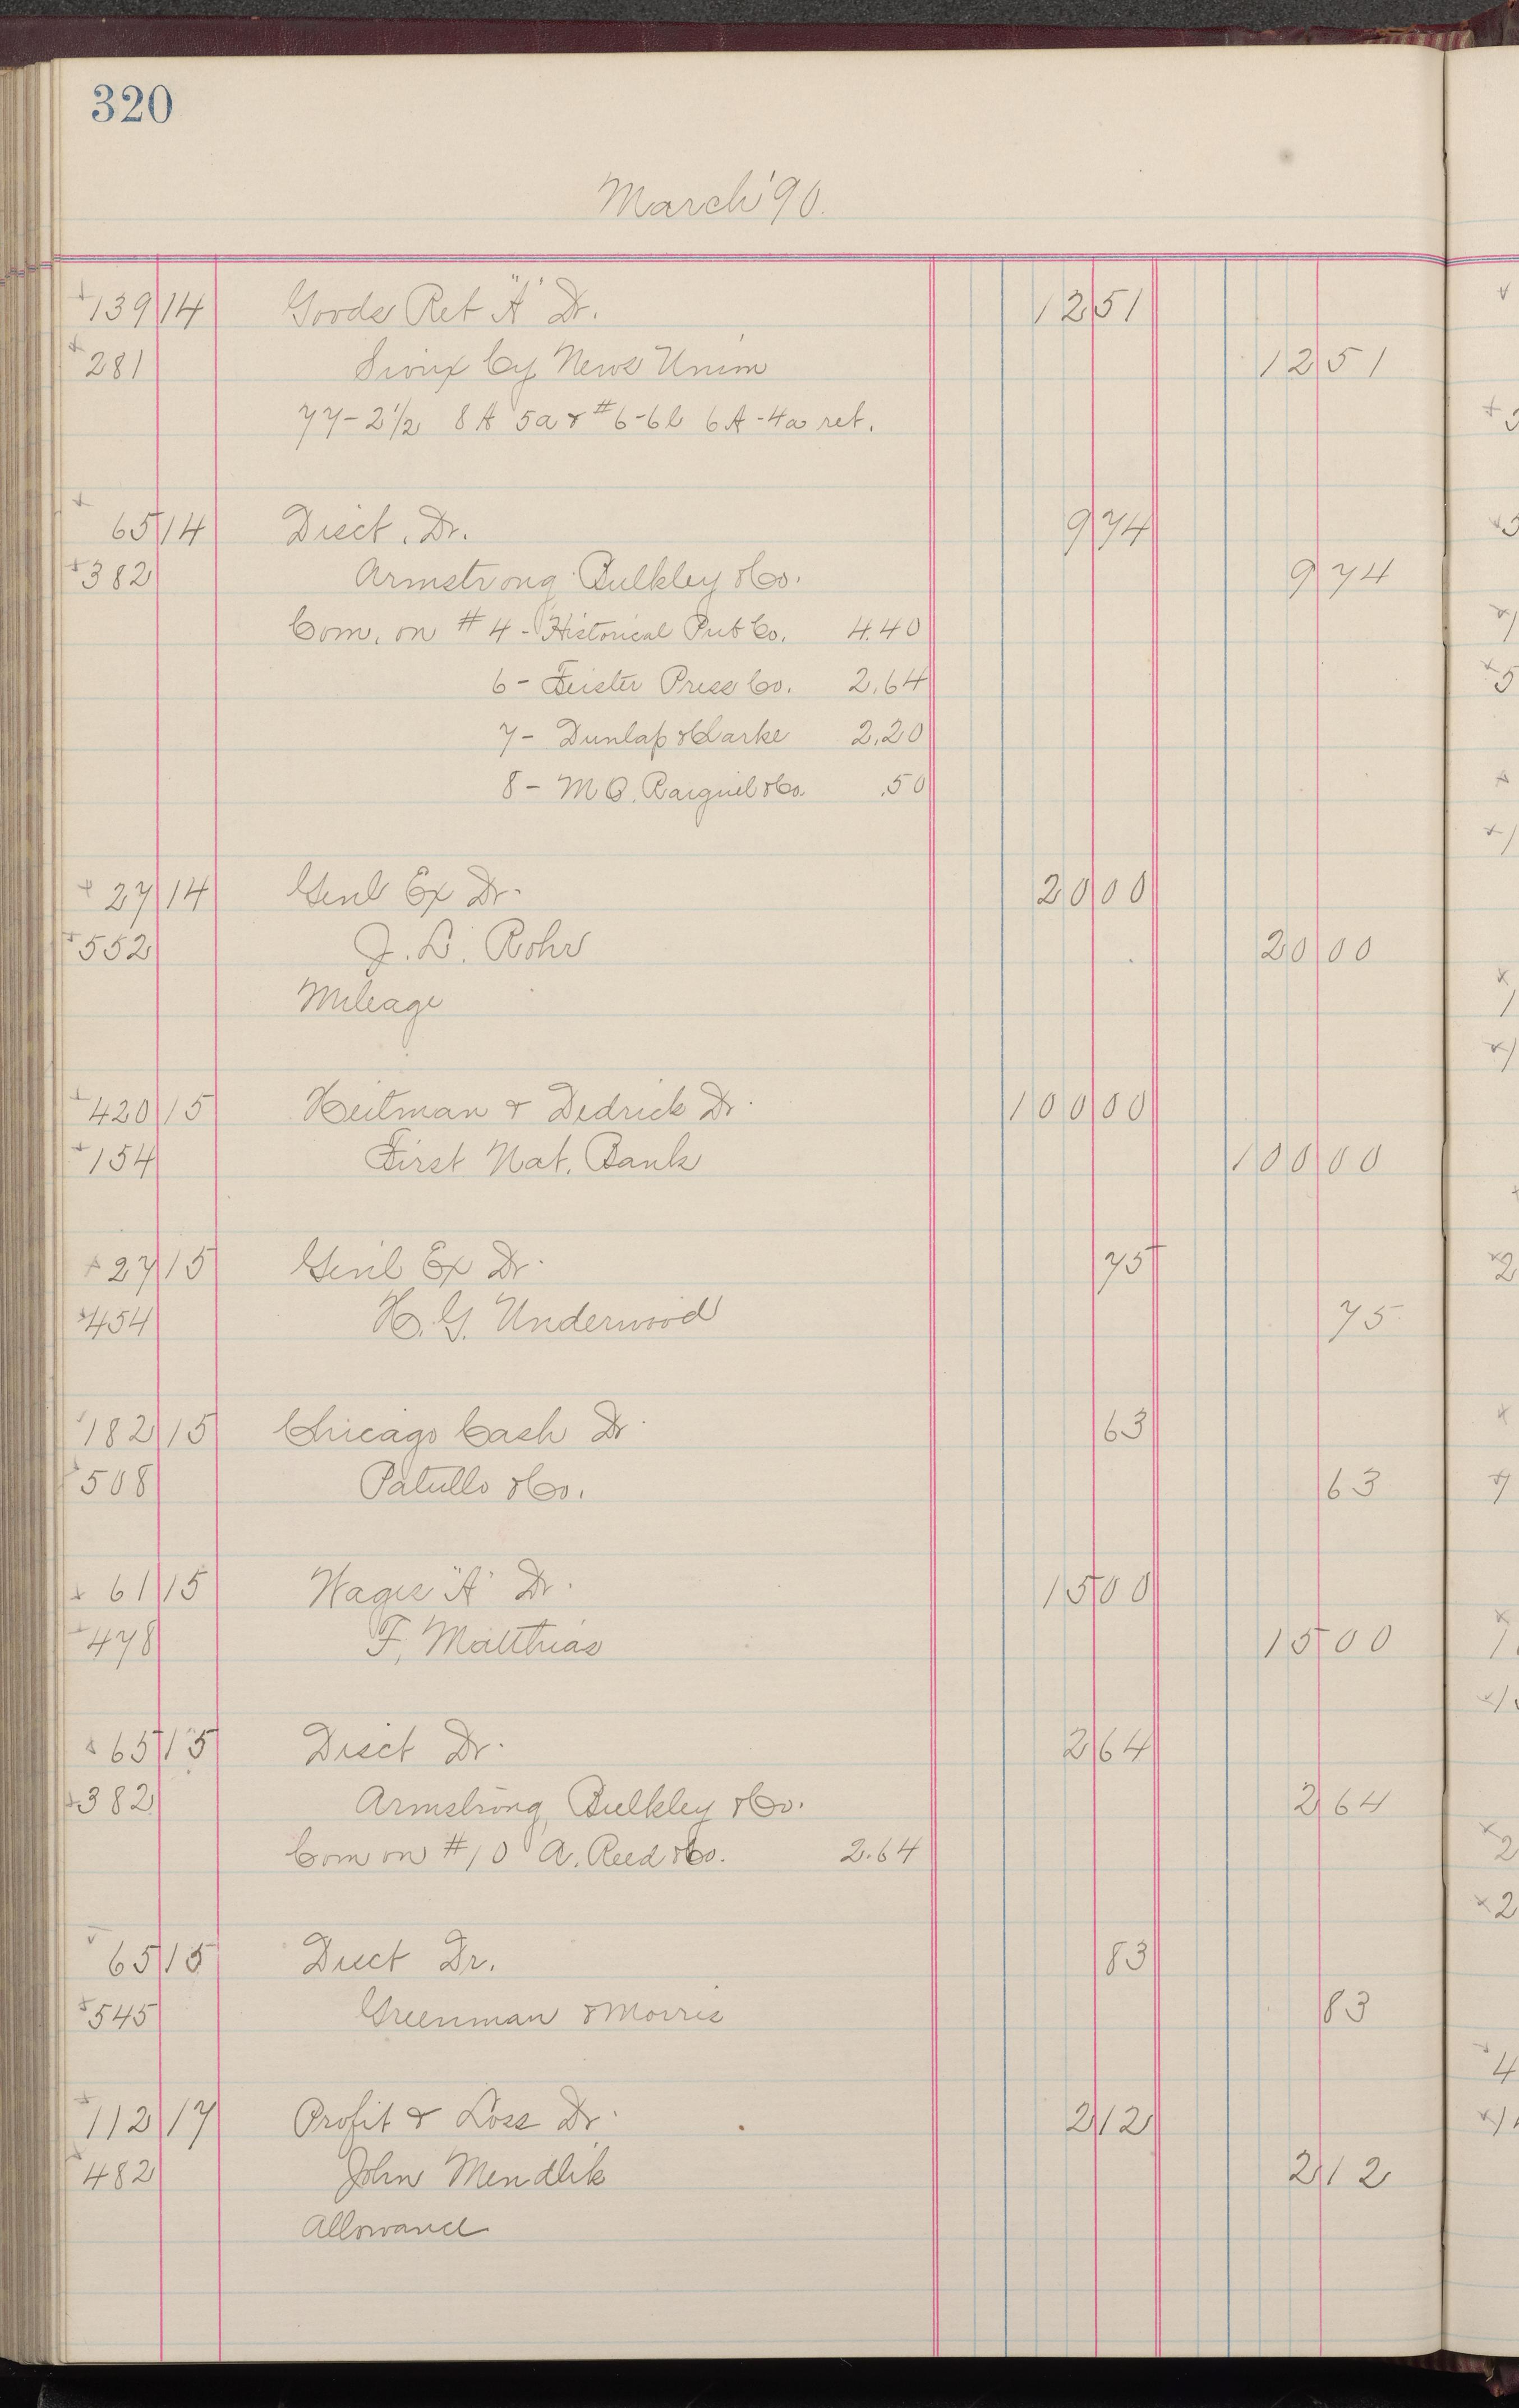 320
March '90.
139 14 Goods Ret "A" Dr. 12 51
281 Sioux Cy News Union 12 51
77-2½ 8A 5a & #6-6b 6A-4a ret.
65 14 Disct. Dr. 9 74
382 Armstrong Bulkley & Co. 9 74
Com. on #4 - Historical Pub Co. 4.40
6 - Feister Press Co. 2.64
7 - Dunlap & Clarke 2.20
8 - M & Co. .50
27 14 Genl Ex Dr. 20 00
552 J. D. Rohr 20 00
Mileage
420 15 Heitman & Dedrick Dr. 100 00
154 First Nat. Bank 100 00
27 15 Genl Ex Dr. 75
454 H. G. Underwood 75
182 15 Chicago Cash Dr. 63
508 Patullo & Co. 63
61 15 Wages "A" Dr. 15 00
478 F. Matthias 15 00
65 15 Disct Dr. 2 64
382 Armstrong Bulkley & Co. 2 64
Com on #10 A. Reed & Co. 2.64
65 15 Disct Dr. 83
545 Greenman & Morris 83
112 17 Profit & Loss Dr. 2 12
482 John Mendlik 2 12
Allowance